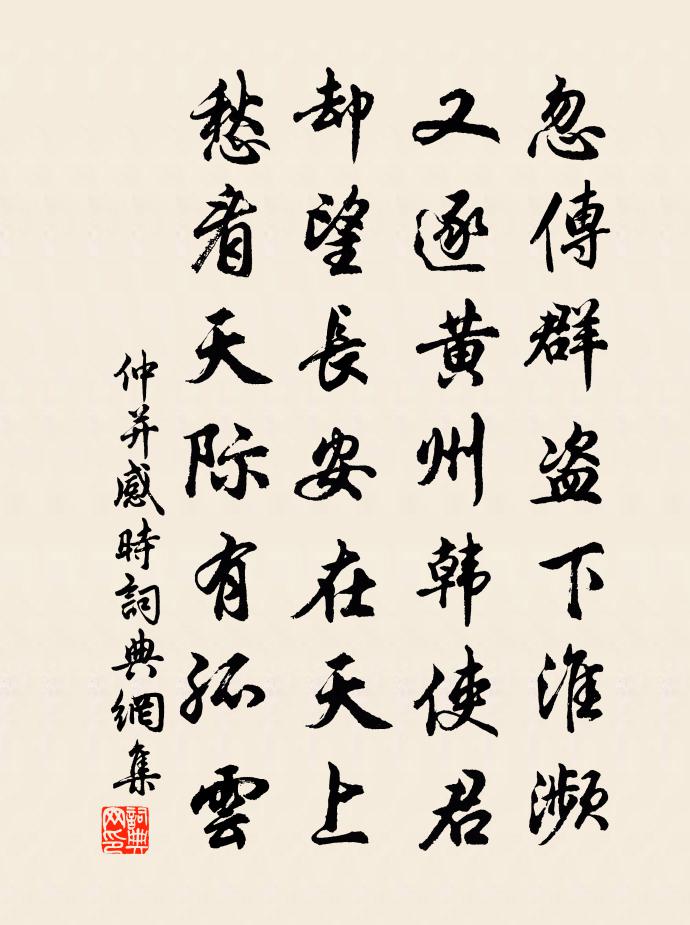 忽傳群盗下淮濒
又逐黄州韩使君
却望長安在天上
愁看天际有孤雲
仲并感時詞典網集
詞典网印